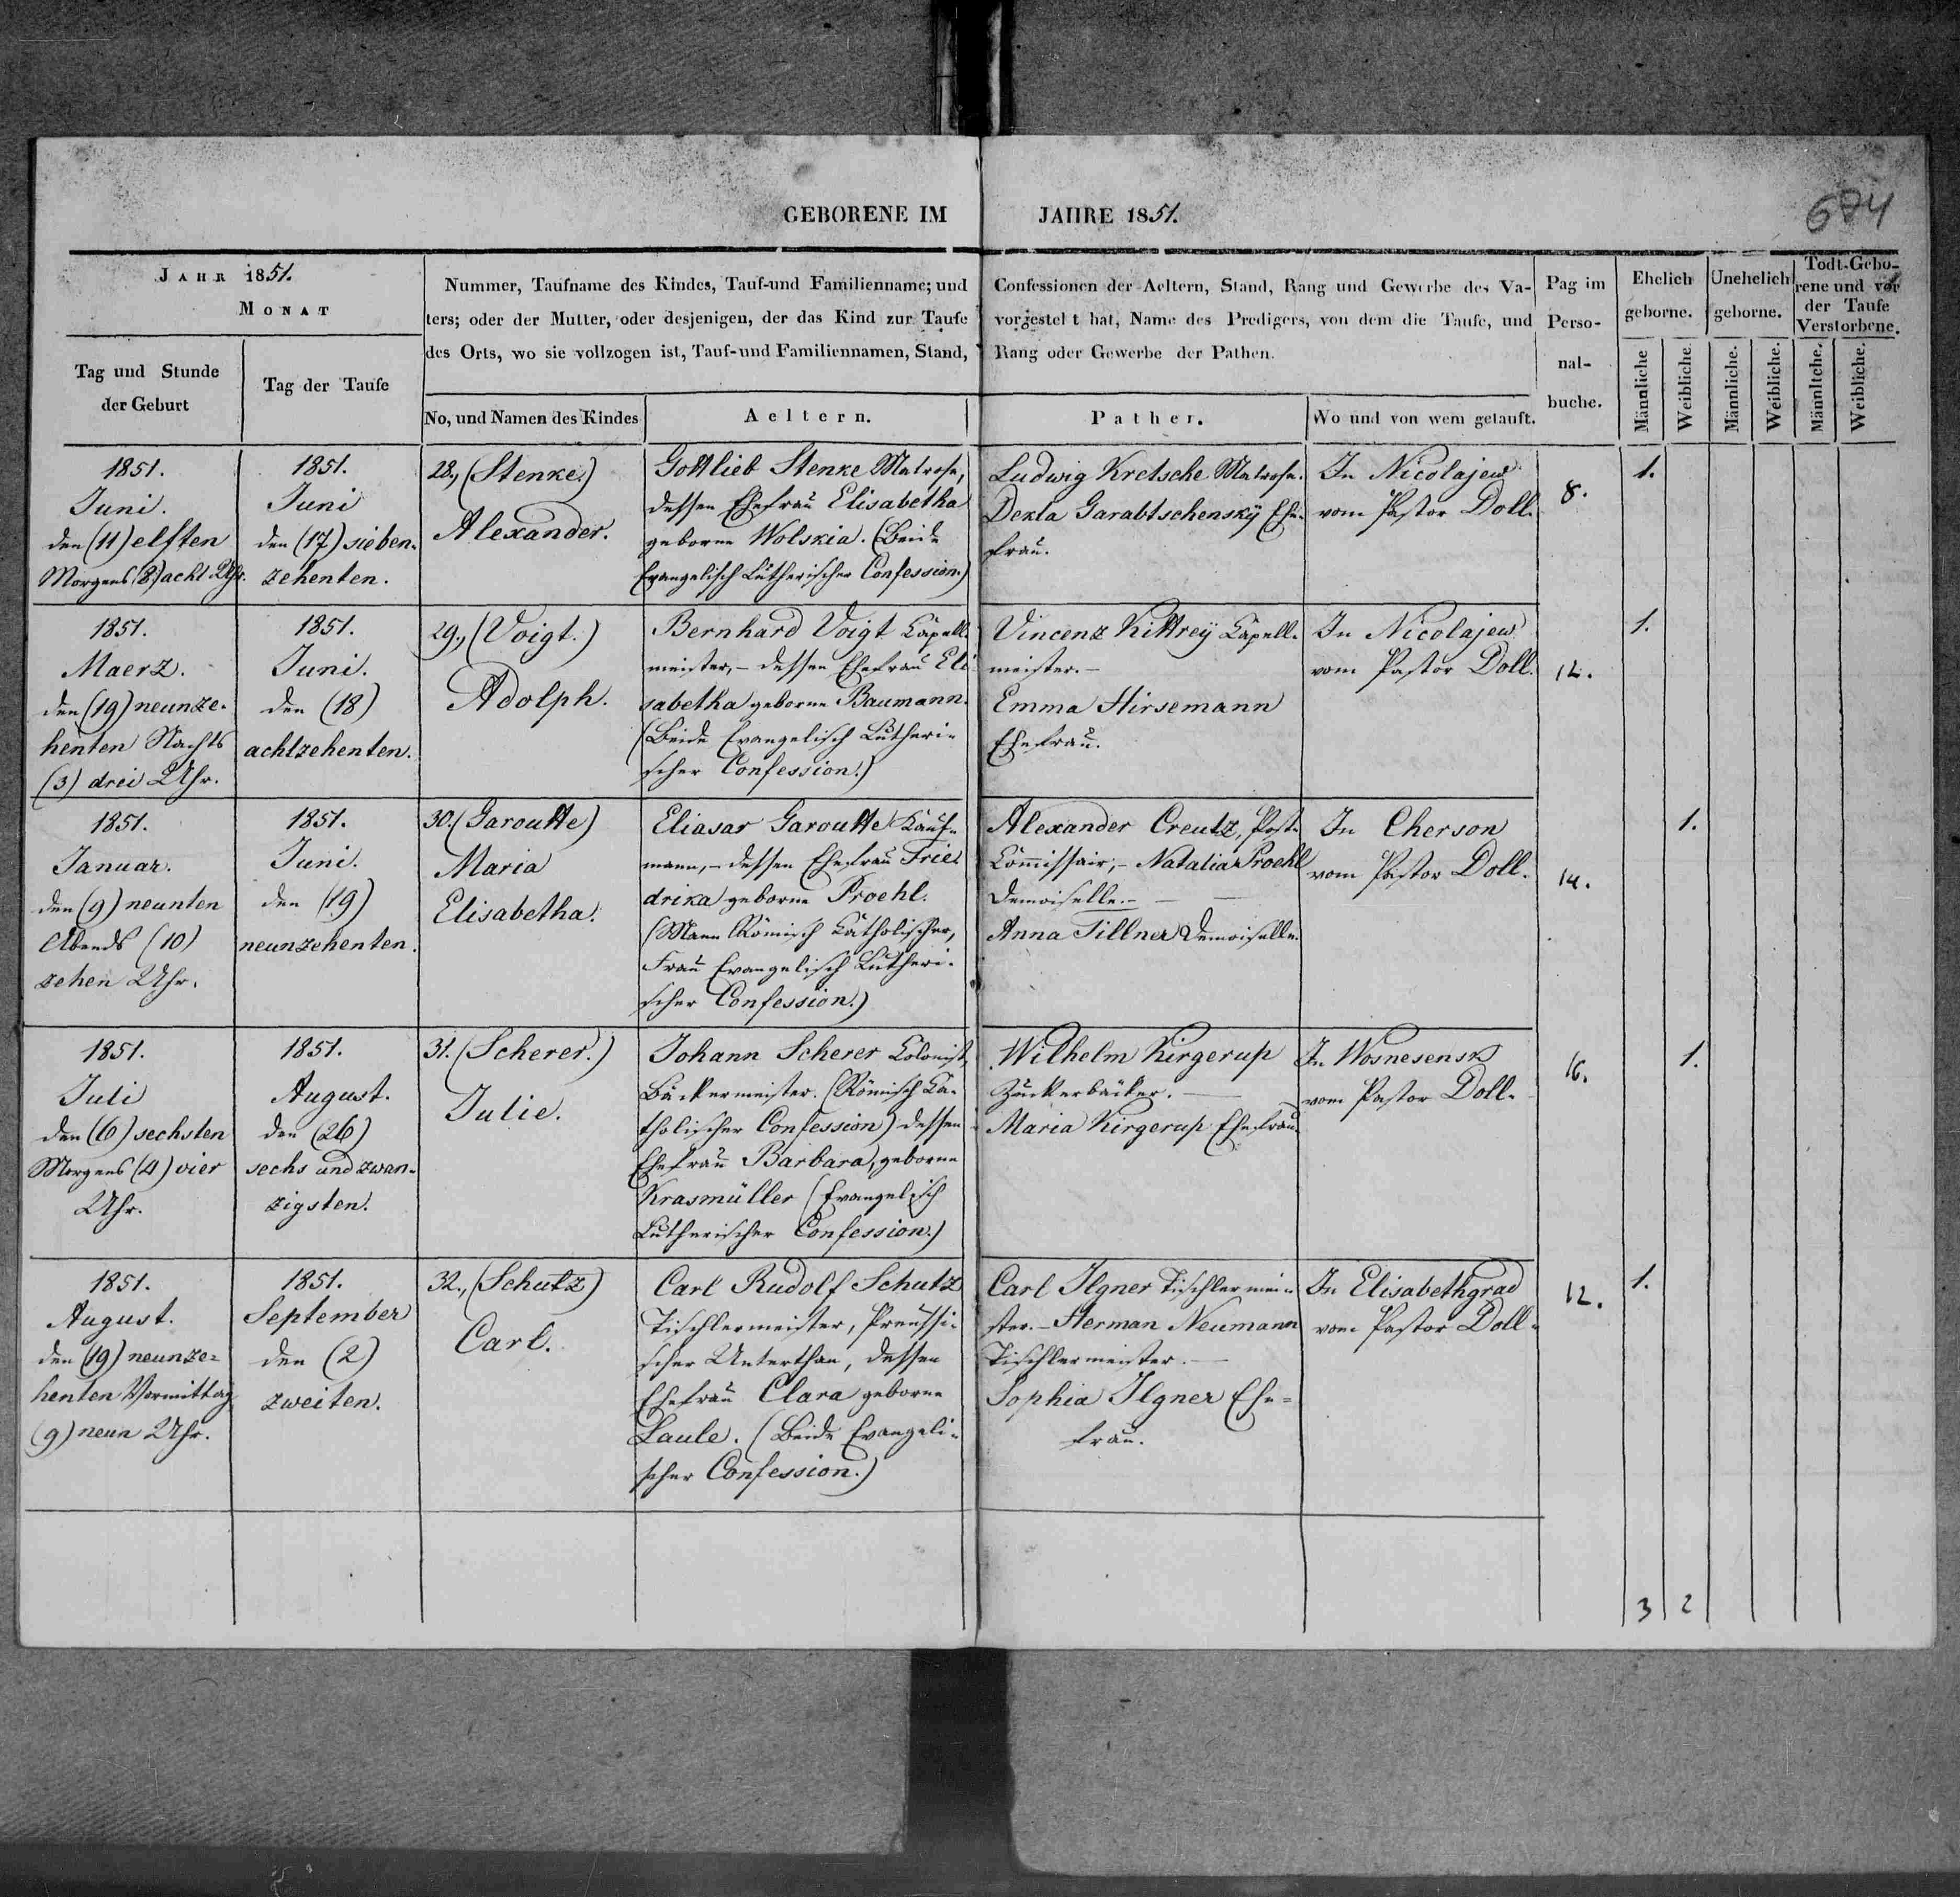 GEBORENE IM JAHRE 1851.
674
JAHR 1851.
MONAT
Tag und Stunde
der Geburt
Tag der Taufe
Nummer, Taufname des Kindes, Tauf-und Familienname; und Confessionen der Aeltern, Stand, Rang und Gewerbe des Va-
ters; oder der Mutter, oder desjenigen, der das Kind zur Taufe vorgestelt hat, Name des Predigers, von dem die Taufe, und
des Orts, wo sie vollzogen ist, Tauf-und Familiennamen, Stand, Rang oder Gewerbe der Pathen.
No, und Namen des Kindes
Aeltern.
Pather.
Wo und von wem getauft.
Pag im
Perso-
nal-
buche.
Ehelich
geborne.
Unehelich
geborne.
Todt-Gebo-
rene und vor
der Taufe
Verstorbene.
Männliche
Weibliche.
Männliche.
Weibliche.
Männltche.
Weibliche.
1851.
Juni.
den (11) elften
Morgens (8) acht Uhr.
1851.
Juni
den (17) sieben-
zehenten.
28., (Stenke.)
Alexander.
Gottlieb Stenke Matrose,
dessen Ehefrau Elisabetha
geborne Wolskia. (Beide
Evangelisch Lutherischer Confession.)
Ludwig Kretsche Matrose.
Dekla Garabtschensky Ehe-
frau.
In Nicolajew
vom Pastor Doll.
8.
1.
1851.
Maerz.
den (19) neunze-
henten Nachts
(3) drei Uhr.
1851.
Juni.
den (18)
achtzehenten.
29., (Voigt.)
Adolph.
Bernhard Voigt Kapell-
meister, - dessen Ehefrau Eli-
sabetha geborne Baumann.
(Beide Evangelisch Lutheri-
scher Confession.)
Vincenz Kittrey Kapell-
meister. -
Emma Hirsemann
Ehefrau.
In Nicolajew
vom Pastor Doll.
12.
1.
1851.
Januar.
den (9) neunten
Abends (10)
zehen Uhr.
1851.
Juni.
den (19)
neunzehenten.
30. (Garoutte)
Maria
Elisabetha.
Eliasar Garoutte Kauf-
mann, - dessen Ehefrau Frie-
drika geborne Proehl.
(Mann Römisch Katholischer,
Frau Evangelisch Lutheri-
scher Confession.)
Alexander Creutz, Post-
Commissair, - Natalia Proehl
Demoiselle. -
Anna Tillner Demoiselle.
In Cherson
vom Pastor Doll.
14.
1.
1851.
Juli
den (6) sechsten
Morgens (4) vier
Uhr.
1851.
August.
den (26)
sechs und zwan-
zigsten.
31. (Scherer.)
Julie.
Johann Scherer Colonist,
Bäckermeister. (Römisch Ka-
tholischer Confession) dessen
Ehefrau Barbara, geborne
Krasmüller (Evangelisch
Lutherischer Confession.)
Wilhelm Kirgerup
Zuckerbäcker. -
Maria Kirgerup Ehefrau.
In Wosnesensk
vom Pastor Doll.
16.
1.
1851.
August.
den (19) neunze-
henten Vormittag
(9) neun Uhr.
1851.
September
den (2)
zweiten.
32., (Schutz)
Carl.
Carl Rudolf Schutz
Tischlermeister, Preussi-
scher Unterthan, dessen
Ehefrau Clara geborne
Laule. (Beide Evangeli-
scher Confession.)
Carl Ilgner Tischlermei-
ster. - Herman Neumann
Tischlermeister. -
Sophia Ilgner Ehe-
frau.
In Elisabethgrad
vom Pastor Doll.
12.
1.
3 2